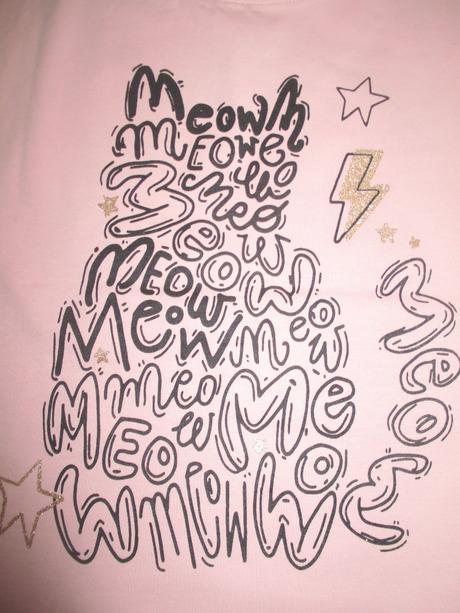 MeowM
MEOWe
meo
Meow
MEOW
Meow meow
M meo Me
MEO ew
W meow Wo
Meow